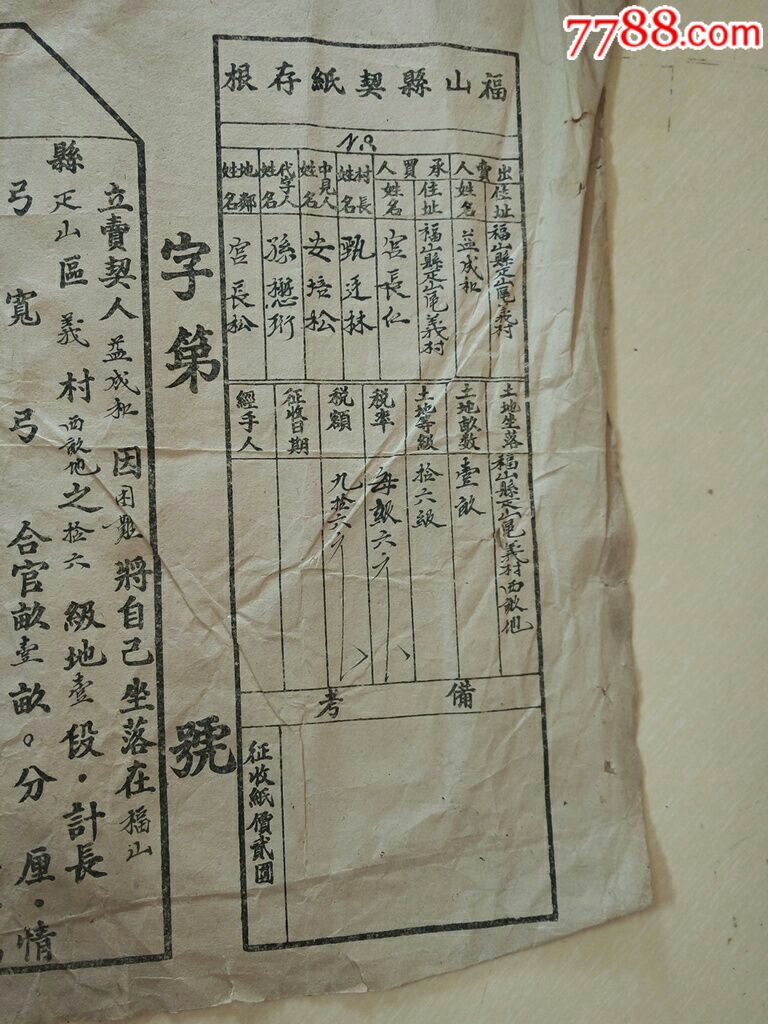 7788.com
福山縣契紙存根
№
出賣人
住址
福山縣疋山區義村
姓名
益成和
承買人
住址
福山縣疋山區義村
姓名
宮長仁
村長姓名
甄廷林
中見人姓名
安培松
代字人姓名
孫懋珩
地鄰姓名
宮長松
土地坐落
福山縣疋山區義村西畝地
土地畝數
壹畝
土地等級
拾六級
稅率
每級六斤
稅額
九拾六斤
征收日期
經手人
備考
征收紙價貳圓
字第 號
立賣契人益成和因困難將自己坐落在福山
縣疋山區義村西畝地之拾六級地壹段·計長
弓寬弓合官畝壹畝。分厘·情